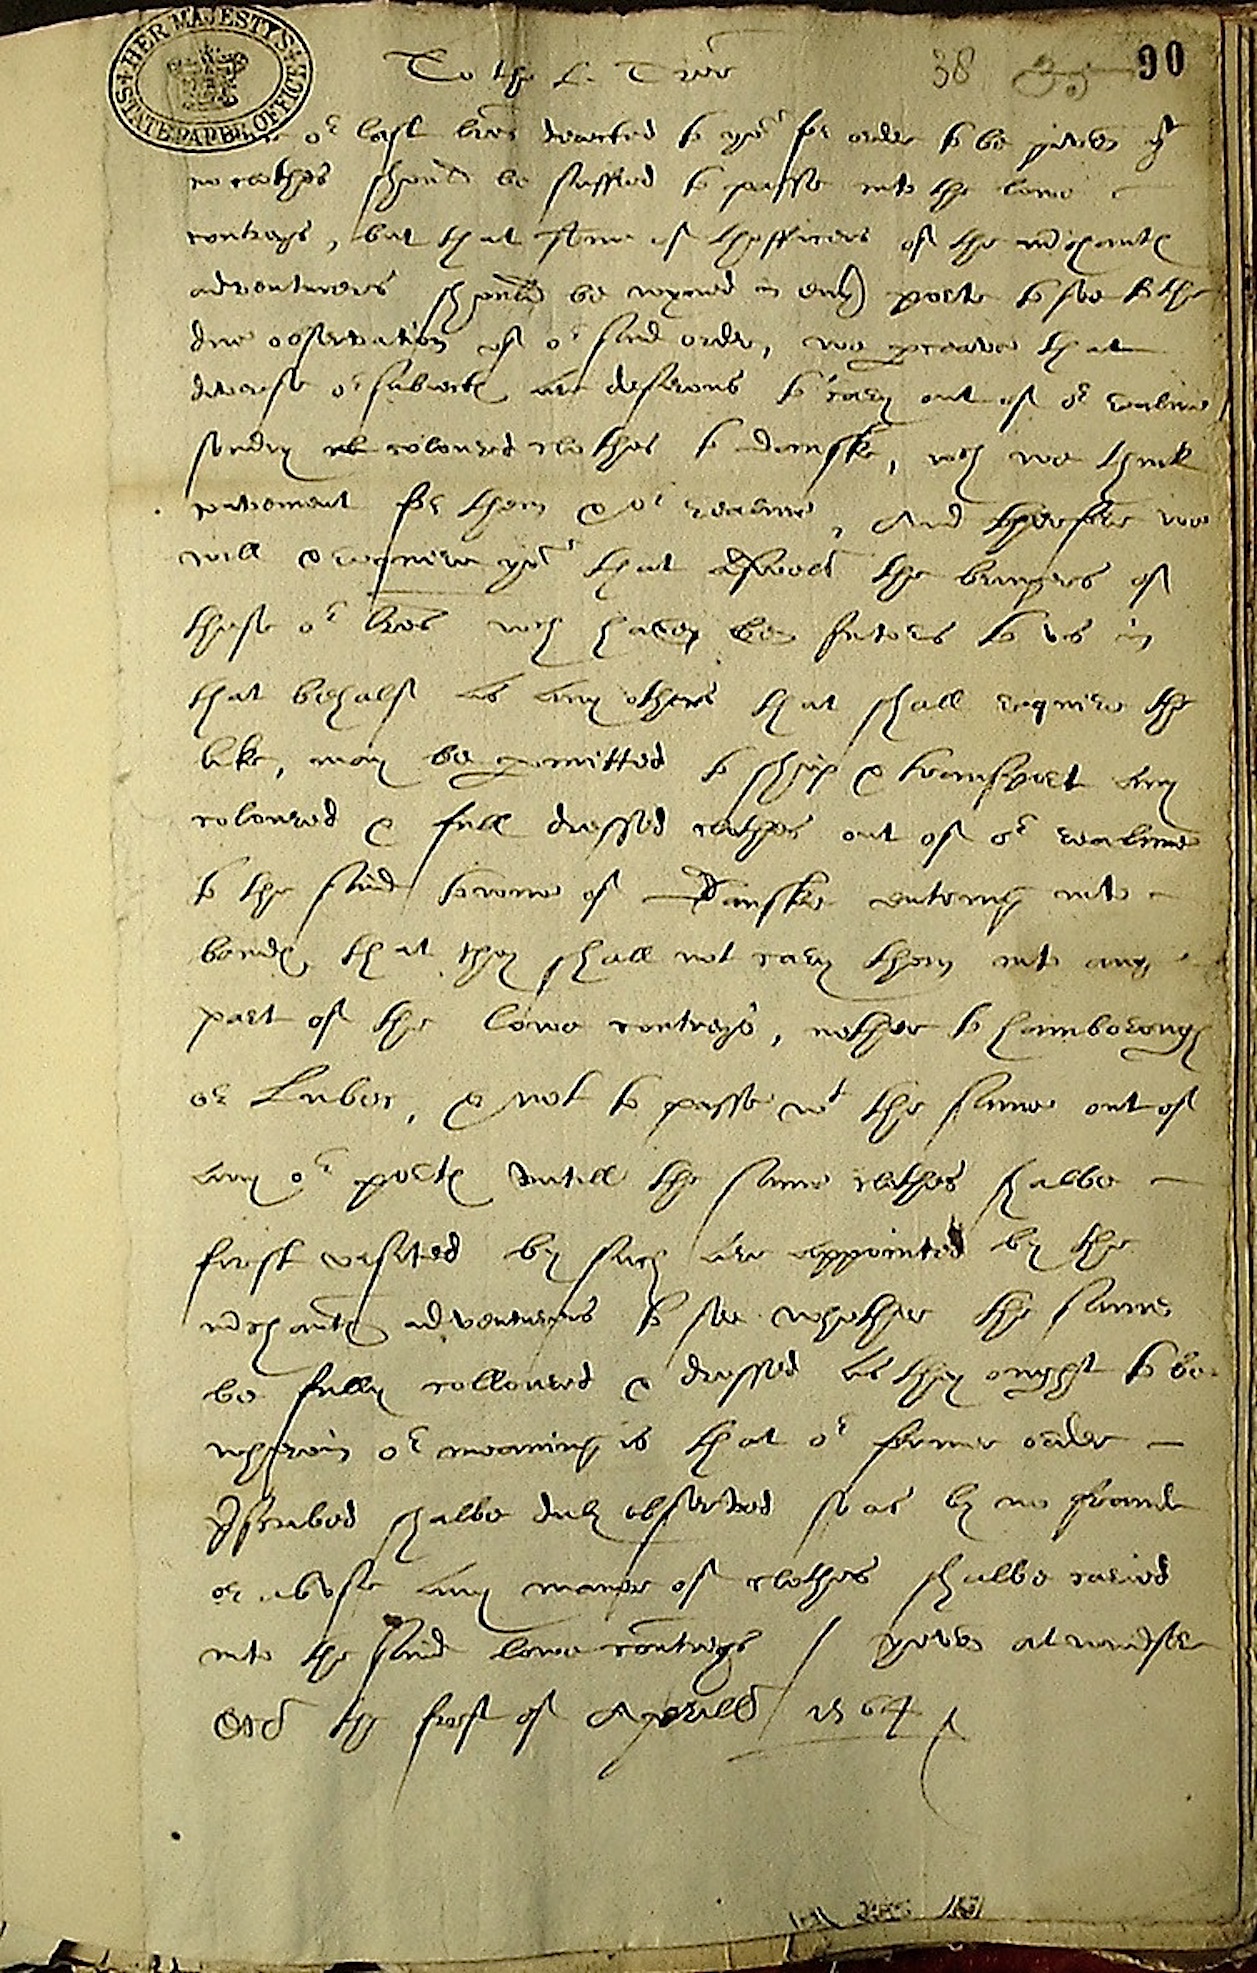 HER MAJESTY'S STATE PAPER OFFICE
To the L. Treär
38
90
oʳ last lr̃es directed to yoᵘ for order to be given yᵗ
no clothes should be suffred to passe into the lowe
contreys, but that some of thofficers of the m̃chantꝭ
adventurers should be in euỹ porte to see to the
due observation of oʳ said order, we that
diverse oʳ subiectꝭ are desirous to cary out of oʳ realme
sondry coloured clothes to damske, wch we think
convenient for them & oʳ realme, And therfore we
will & require yoᵘ that aswell the bringers of
these oʳ lr̃es wch haven ben sutors to us in
that behalf as any others that shall require the
like, may be ꝑmitted to ship & transport any
coloured & full dressed clothes out of oʳ realme
to the said towne of Danske entering into
bondꝭ, that they shall not cary them into any
part of the lowe contreys, nether to hamborough
or Lubec, & not to passe wᵗ the same out of
any oʳ portꝭ untill the same clothes shalbe
first visited by such are appointed by the
m̃chantꝭ adventurers to see whether the same
be fully colloured & dressed as they ought to be.
wherein oʳ meaning is that oʳ former order
p̃scribed shalbe duly observed so as by no fraude
or abuse any maner of clothes shalbe caried
into the said lowe contreys / yeven at windsor
the first of Aprill 1564